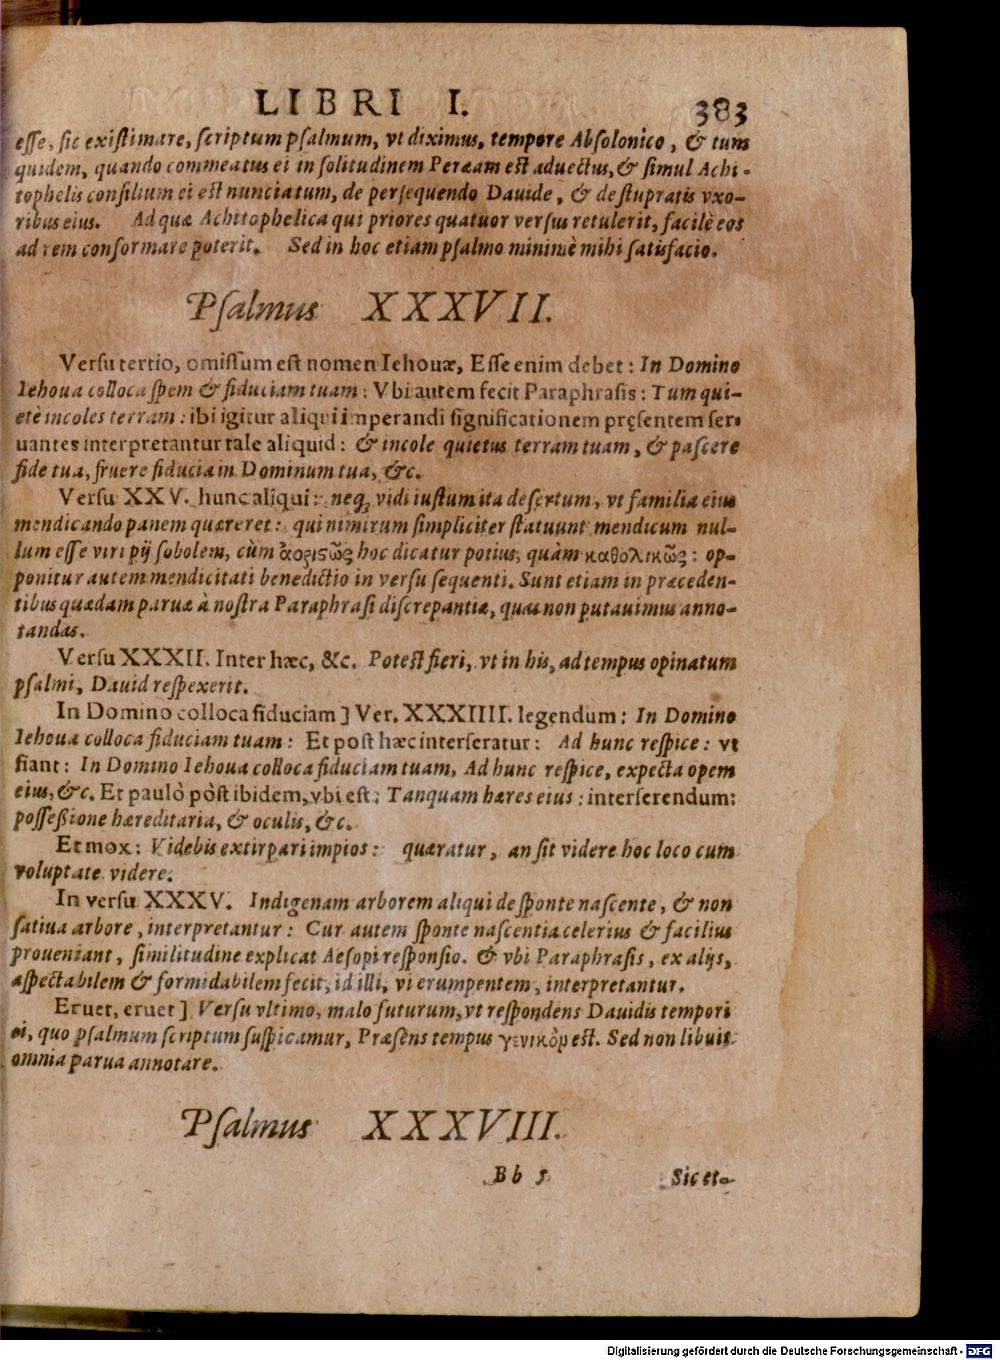 LIBRI I. 383
esse, sic existimare, scriptum psalmum, vt diximus, tempore Absolonico, & tum
quidem, quando commeatus ei in solitudinem Peræam est aduectus, & simul Achi-
tophelis consilium ei est nunciatum, de persequendo Dauide, & destupratis vxo-
ribus eius. Ad quæ Achitophelica qui priores quatuor versus retulerit, facilè eos
ad rem conformare poterit. Sed in hoc etiam psalmo minimè mihi satisfacio.
Psalmus XXXVII.
Versu tertio, omissum est nomen Iehouæ, Esse enim debet: In Domino
Iehoua colloca spem & fiduciam tuam: Vbi autem fecit Paraphrasis: Tum qui-
etè incoles terram: ibi igitur aliqui imperandi significationem pręsentem ser-
uantes interpretantur tale aliquid: & incole quietus terram tuam, & pascere
fide tua, fruere fiducia in Dominum tua, &c.
Versu XXV. hunc aliqui: neq; vidi iustum ita desertum, vt familia eius
mendicando panem quæreret: qui nimirum simpliciter statuunt mendicum nul-
lum esse viri pij sobolem, cùm ἀορίστως hoc dicatur potius, quàm καθολικῶς: op-
ponitur autem mendicitati benedictio in versu sequenti. Sunt etiam in præceden-
tibus quædam paruæ à nostra Paraphrasi discrepantiæ, quas non putauimus anno-
tandas.
Versu XXXII. Inter hæc, &c. Potest fieri, vt in his, ad tempus opinatum
psalmi, Dauid respexerit.
In Domino colloca fiduciam] Ver. XXXIIII. legendum: In Domino
Iehoua colloca fiduciam tuam: Et post hæc interseratur: Ad hunc respice: vt
fiant: In Domino Iehoua colloca fiduciam tuam, Ad hunc respice, expecta opem
eius, &c. Et paulò pòst ibidem, vbi est: Tanquam hæres eius: interserendum:
possessione hæreditaria, & oculis, &c.
Et mox: Videbis extirpari impios: quæratur, an sit videre hoc loco cum
voluptate videre.
In versu XXXV. Indigenam arborem aliqui de sponte nascente, & non
satiua arbore, interpretantur: Cur autem sponte nascentia celerius & facilius
proueniant, similitudine explicat Aesopi responsio. & vbi Paraphrasis, ex alijs,
aspectabilem & formidabilem fecit, id illi, vi erumpentem, interpretantur.
Eruet, eruet] Versu vltimo, malo futurum, vt respondens Dauidis tempori
ei, quo psalmum scriptum suspicamur, Præsens tempus γενικὸν est. Sed non libuit
omnia parua annotare.
Psalmus XXXVIII.
Bb 5 Sic et-
Digitalisierung gefördert durch die Deutsche Forschungsgemeinschaft - DFG